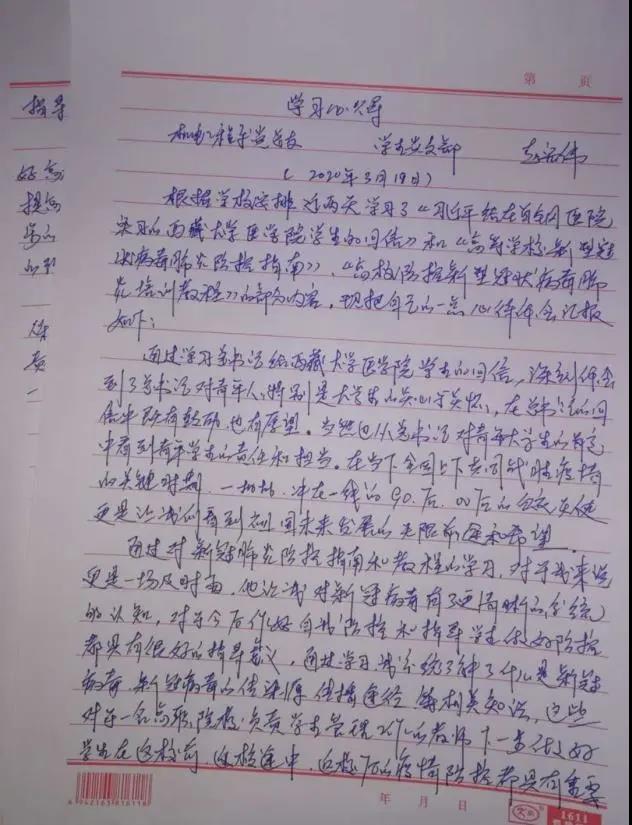 第 页
学习心得
机电工程系党总支 学生党支部
(2020年3月19日)
根据学校安排近两天学习了《习近平给在首钢医院
实习的西藏大学医学院学生的回信》和《高等学校新型冠
状病毒肺炎防控指南》、《高校防控新型冠状病毒肺
炎培训教程》的部分内容,现把自己的一点心得体会汇报
如下:
通过学习总书记给西藏大学医学院学生的回信,深刻体会
到了总书记对青年人特别是大学生的关心与关怀,在总书记的回
信中既有鼓励,也有厚望。当然也从总书记对青年大学生的
中看到青年学生的责任和担当。在当下全国上下共同战时疫情
的关键时期,一批批冲在一线的90后、00后的白衣天使
更是让我们看到祖国未来发展的无限前途和希望。
通过对新冠肺炎防控指南和教程的学习,对于我来说
更是一场及时雨,他让我对新冠病毒有了更清晰的系统
的认知,对于今后作好自我防控和指导学生做好防控
都具有很好的指导意义,通过学习,我系统了解了什么是新冠
病毒,新冠病毒的传染源 传播途径 等相关知识,这些
对于一名高职院校负责学生管理工作的教师下一步做好
学生在返校前、返校途中、返校后的疫情防控都具有重要
年 月 日
6942165816118
1611
指导
一